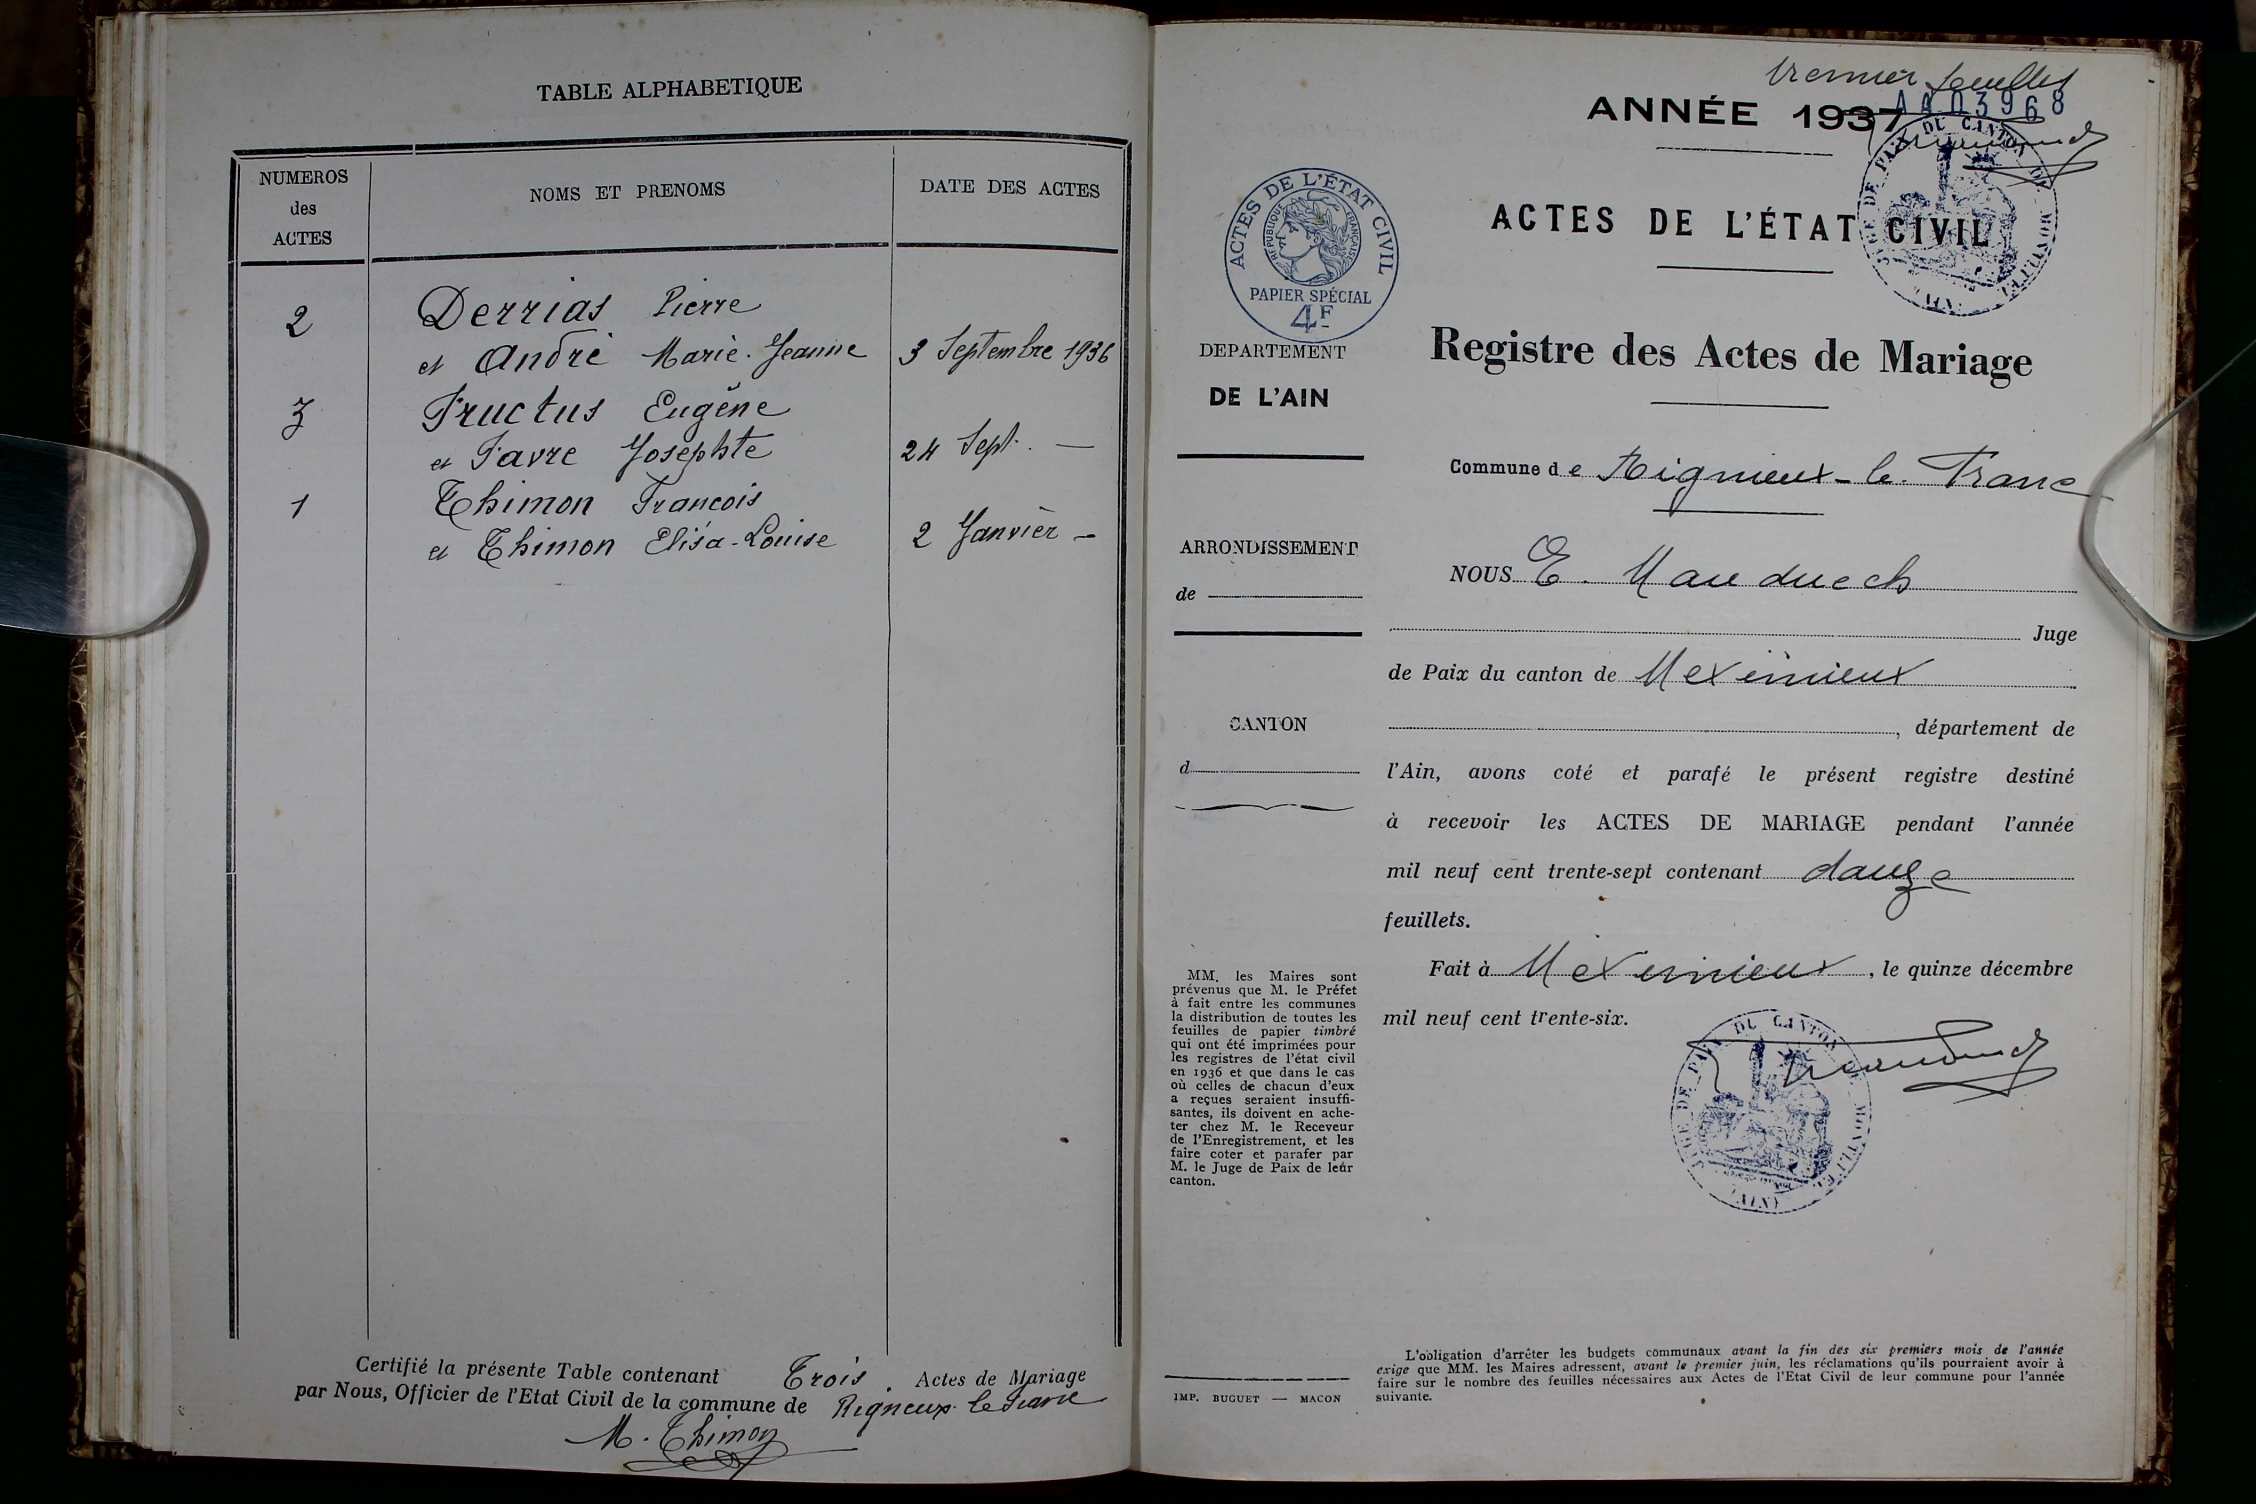 TABLE ALPHABETIQUE
NUMEROS
des
ACTES
NOMS ET PRENOMS
DATE DES ACTES
2 Derrias Pierre
et André Marie-Jeanne 3 Septembre 1936
3 Fructus Eugène
et Favre Josephte 24 Sept. —
1 Thimon Francois
et Thimon Elisa-Louise 2 Janvier —
Certifié la présente Table contenant Trois Actes de Mariage
par Nous, Officier de l'Etat Civil de la commune de Rigneux le Franc
M. Thimon
Premier feuillet
ANNÉE 1937
AA03968
JUGE DE PAIX DU CANTON DE MONTLUEL
(AIN)
ACTES DE L'ÉTAT CIVIL
RÉPUBLIQUE FRANÇAISE
PAPIER SPÉCIAL
4F
ACTES DE L'ÉTAT CIVIL
Registre des Actes de Mariage
DEPARTEMENT
DE L'AIN
Commune de Rignieux-le-Franc
ARRONDISSEMENT
de
NOUS E. Manduech
Juge
de Paix du canton de Meximieux
CANTON
d
, département de
l'Ain, avons coté et parafé le présent registre destiné
à recevoir les ACTES DE MARIAGE pendant l'année
mil neuf cent trente-sept contenant douze
feuillets.
Fait à Meximieux, le quinze décembre
mil neuf cent trente-six.
JUGE DE PAIX DU CANTON DE MONTLUEL
(AIN)
MM. les Maires sont
prévenus que M. le Préfet
à fait entre les communes
la distribution de toutes les
feuilles de papier timbré
qui ont été imprimées pour
les registres de l'état civil
en 1936 et que dans le cas
où celles de chacun d'eux
a reçues seraient insuffi-
santes, ils doivent en ache-
ter chez M. le Receveur
de l'Enregistrement, et les
faire coter et parafer par
M. le Juge de Paix de leur
canton.
IMP. BUGUET — MACON
L'obligation d'arrêter les budgets communaux avant la fin des six premiers mois de l'année
exige que MM. les Maires adressent, avant le premier juin, les réclamations qu'ils pourraient avoir à
faire sur le nombre des feuilles nécessaires aux Actes de l'Etat Civil de leur commune pour l'année
suivante.